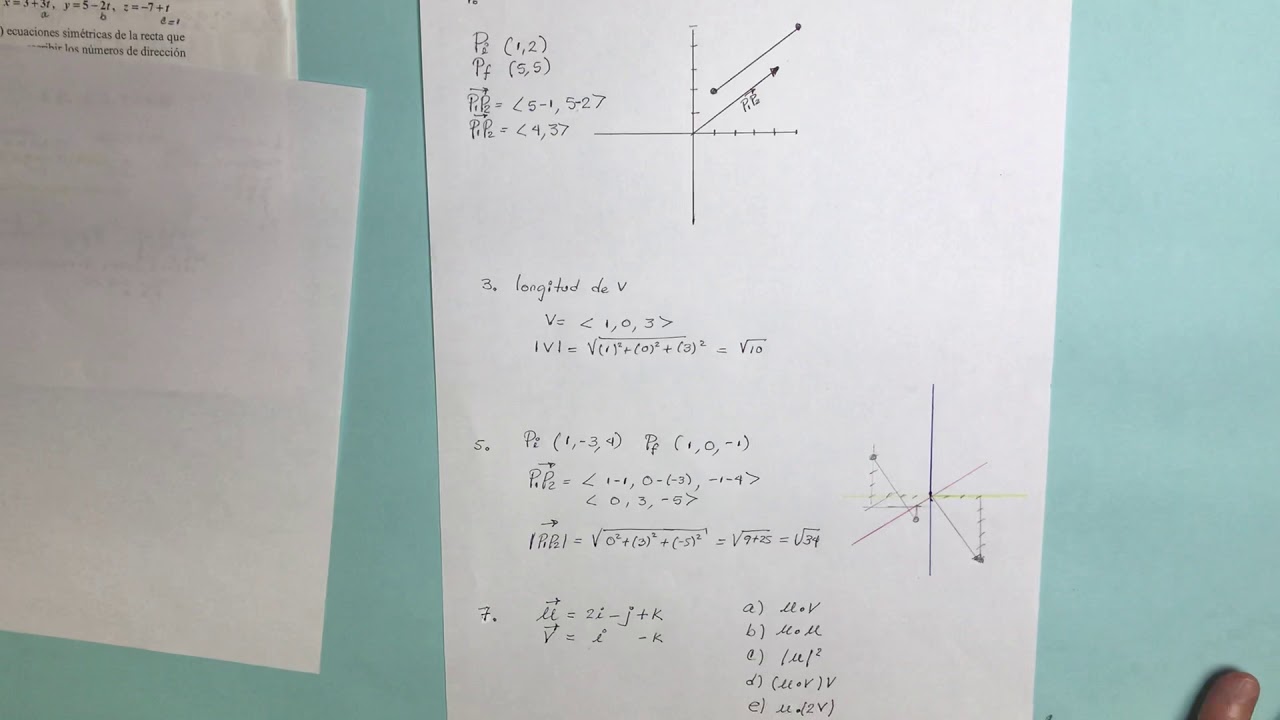 x = 3 + 3t, y = 5 − 2t, z = −7 + t
a b c=1
) ecuaciones simétricas de la recta que
los números de dirección
Pi (1,2)
Pf (5,5)
P₁P₂ = <5-1, 5-2>
P₁P₂ = <4,3>
P₁P₂
3. longitud de V
V= <1, 0, 3>
|V| = √(1)²+(0)²+(3)² = √10
5. Pi (1,-3,4) Pf (1,0,-1)
P₁P₂ = <1-1, 0-(-3), -1-4>
<0, 3, -5>
|P₁P₂| = √0²+(3)²+(-5)² = √9+25 = √34
7. u = 2i - j + k
V = i - k
a) u•V
b) u•u
c) |u|²
d) (u•V)V
e) u•(2V)